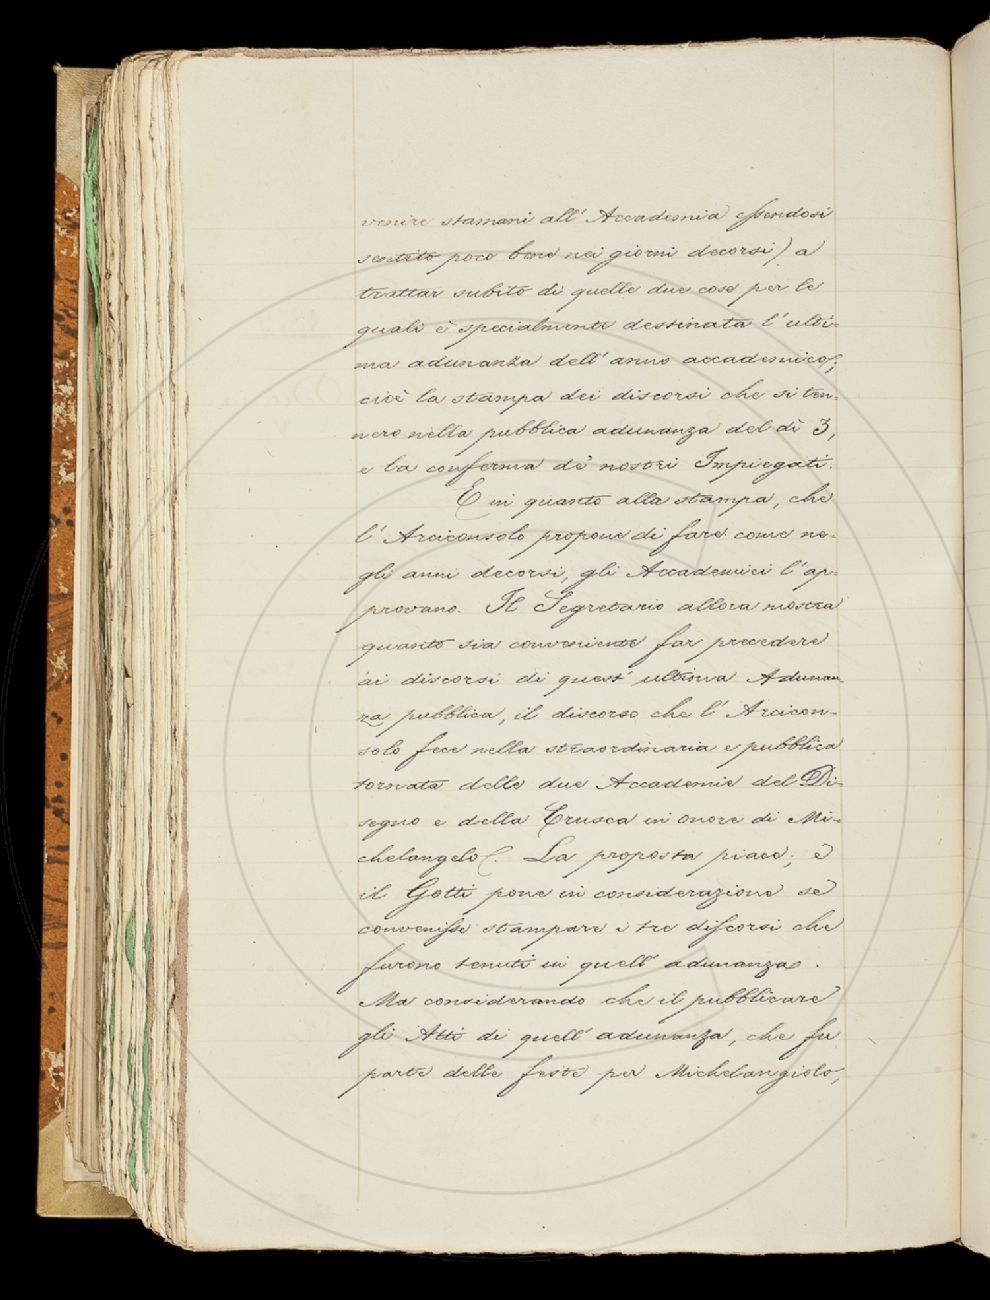 venire stamani all' Accademia essendosi
sentito poco bene nei giorni decorsi) a
trattar subito di quelle due cose per le
quali è specialmente destinata l'ulti-
ma adunanza dell'anno accademico,
cioè la stampa dei discorsi che si ten-
nero nella pubblica adunanza del dì 3,
e la conferma de' nostri Impiegati.
E in quanto alla stampa, che
l'Arciconsolo propone di fare come ne-
gli anni decorsi, gli Accademici l'ap-
provano. Il Segretario allora mostra
quanto sia conveniente far precedere
ai discorsi di quest'ultima Adunan-
za pubblica, il discorso che l'Arcicon-
solo fece nella straordinaria e pubblica
tornata delle due Accademie del Di-
segno e della Crusca in onore di Mi-
chelangelo. La proposta piace; e
il Gotti pone in considerazione se
convenisse stampare i tre discorsi che
furono tenuti in quell'adunanza.
Ma considerando che il pubblicare
gli Atti di quell'adunanza, che fu
parte delle feste per Michelangiolo,